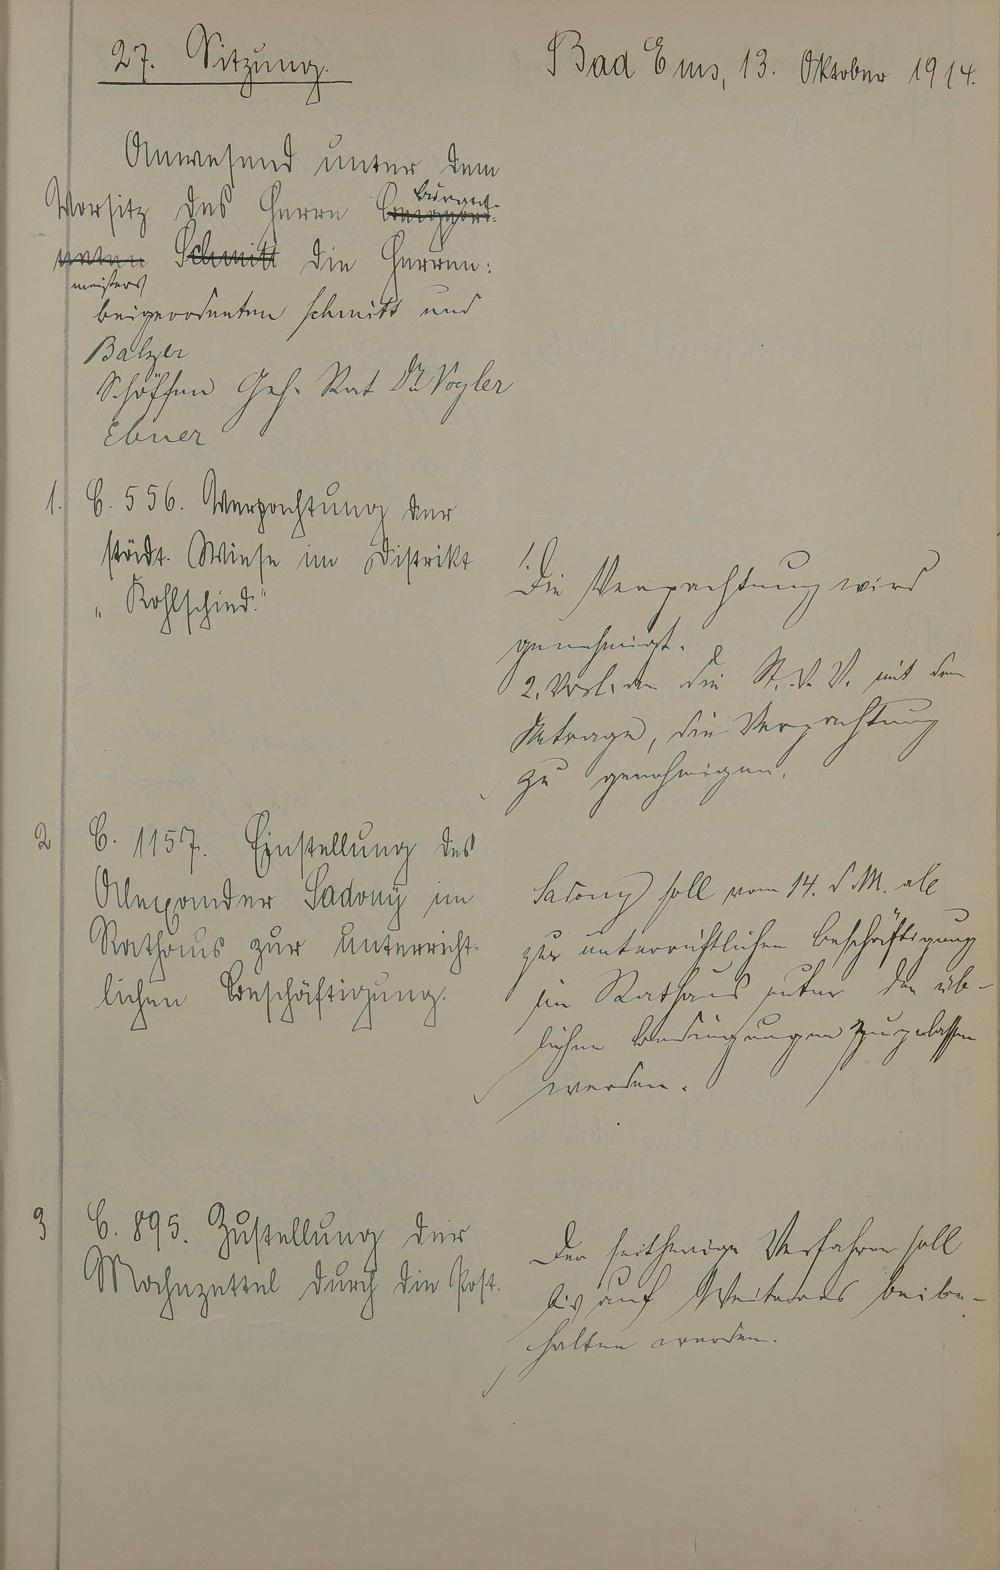 27. Sitzung.
Bad Ems, 13. Oktober 1914.
Anwesend unter dem
Vorsitz des Herrn Beigeord- Bürger-
neten Schmitt die Herren:
meisters
Beigeordneten Schmitt und
Balzer
Schöffen Geh. Rat Dr. Vogler
Ebner
1. C. 556. Verpachtung der
städt. Wiese im Distrikt
„Kohlschied."
1. Die Verpachtung wird
genehmigt.
2. Vorl. an die St. V. V. mit dem
Antrage, die Verpachtung
zu genehmigen.
2 C. 1157. Einstellung des
Alexander Sadony im
Rathaus zur unterricht-
lichen Beschäftigung.
Sadony soll vom 14. d. M. ab
zur unterrichtlichen Beschäftigung
im Rathaus unter den üb-
lichen Bedingungen zugelassen
werden.
3 C. 895. Zustellung der
Mahnzettel durch die Post.
Das seitherige Verfahren soll
bis auf Weiteres beibe-
halten werden.